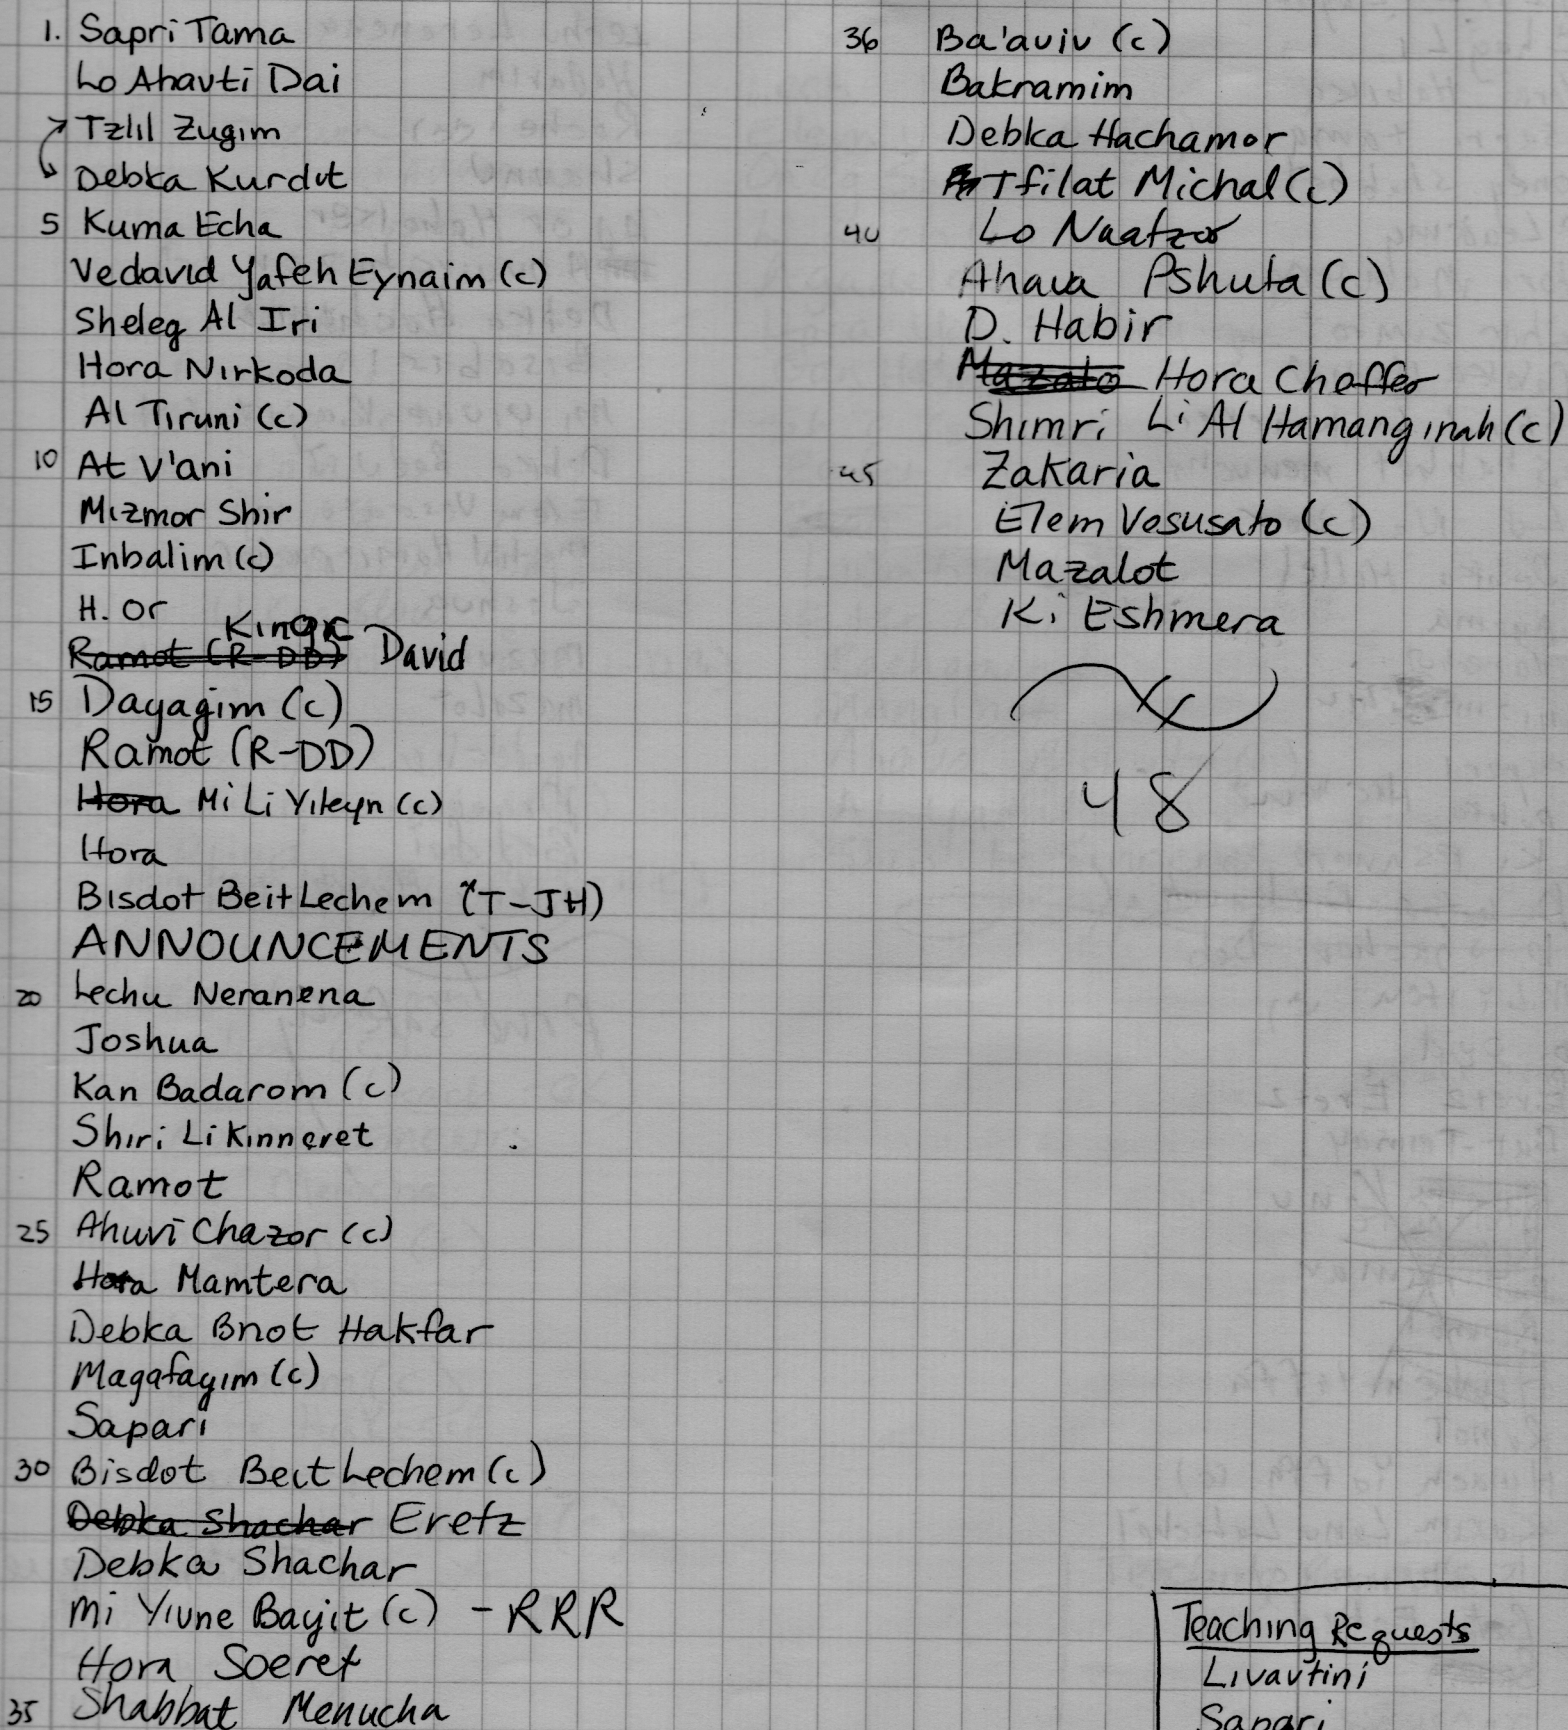 1. Sapri Tama
Lo Ahavti Dai
Tzlil Zugim
Debka Kurdit
5 Kuma Echa
Vedavid Yafeh Eynaim (c)
Sheleg Al Iri
Hora Nirkoda
Al Tiruni (c)
10 At V'ani
Mizmor Shir
Inbalim (c)
H. Or
Ramot (R-DD) King David
15 Dayagim (c)
Ramot (R-DD)
Hora Mi Li Yiteyn (c)
Hora
Bisdot Beit Lechem (T-JH)
ANNOUNCEMENTS
20 Lechu Neranena
Joshua
Kan Badarom (c)
Shiri Li Kinneret
Ramot
25 Ahuvi Chazor (c)
Hora Mamtera
Debka Bnot Hakfar
Magafayim (c)
Sapari
30 Bisdot Beit Lechem (c)
Debka Shachar Eretz
Debka Shachar
Mi Yivne Bayit (c) - RRR
Hora Soeret
35 Shabbat Menucha
36 Ba'aviv (c)
Bakramim
Debka Hachamor
Tfilat Michal (c)
40 Lo Naatzor
Ahava Pshuta (c)
D. Habir
Mazalo Hora Cheffer
Shimri Li Al Hamanginah (c)
45 Zakaria
Elem Vesusato (c)
Mazalot
Ki Eshmera
48
Teaching Requests
Livavtini
Sapari